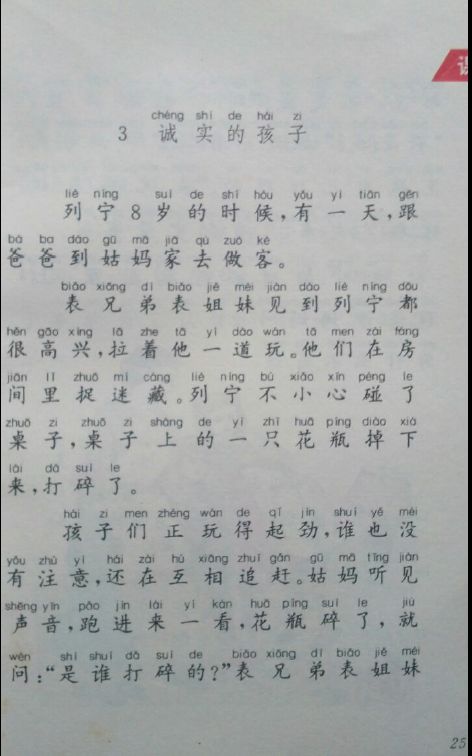 chéng shí de hái zi
3 诚实的孩子
liè níng suì de shí hòu yǒu yì tiān gēn
列宁8岁的时候,有一天,跟
bà ba dào gū mā jiā qù zuò kè
爸爸到姑妈家去做客。
biǎo xiōng dì biǎo jiě mèi jiàn dào liè níng dōu
表兄弟表姐妹见到列宁都
hěn gāo xìng lā zhe tā yí dào wán tā men zài fáng
很高兴,拉着他一道玩。他们在房
jiān lǐ zhuō mí cáng liè níng bù xiǎo xīn pèng le
间里捉迷藏。列宁不小心碰了
zhuō zi zhuō zi shàng de yì zhī huā píng diào xià
桌子,桌子上的一只花瓶掉下
lái dǎ suì le
来,打碎了。
hái zi men zhèng wán de qǐ jìn shuí yě méi
孩子们正玩得起劲,谁也没
yǒu zhù yì hái zài hù xiāng zhuī gǎn gū mā tīng jiàn
有注意,还在互相追赶。姑妈听见
shēng yīn pǎo jìn lái yí kàn huā píng suì le jiù
声音,跑进来一看,花瓶碎了,就
wèn shì shuí dǎ suì de biǎo xiōng dì biǎo jiě mèi
问:“是谁打碎的?”表兄弟表姐妹
25